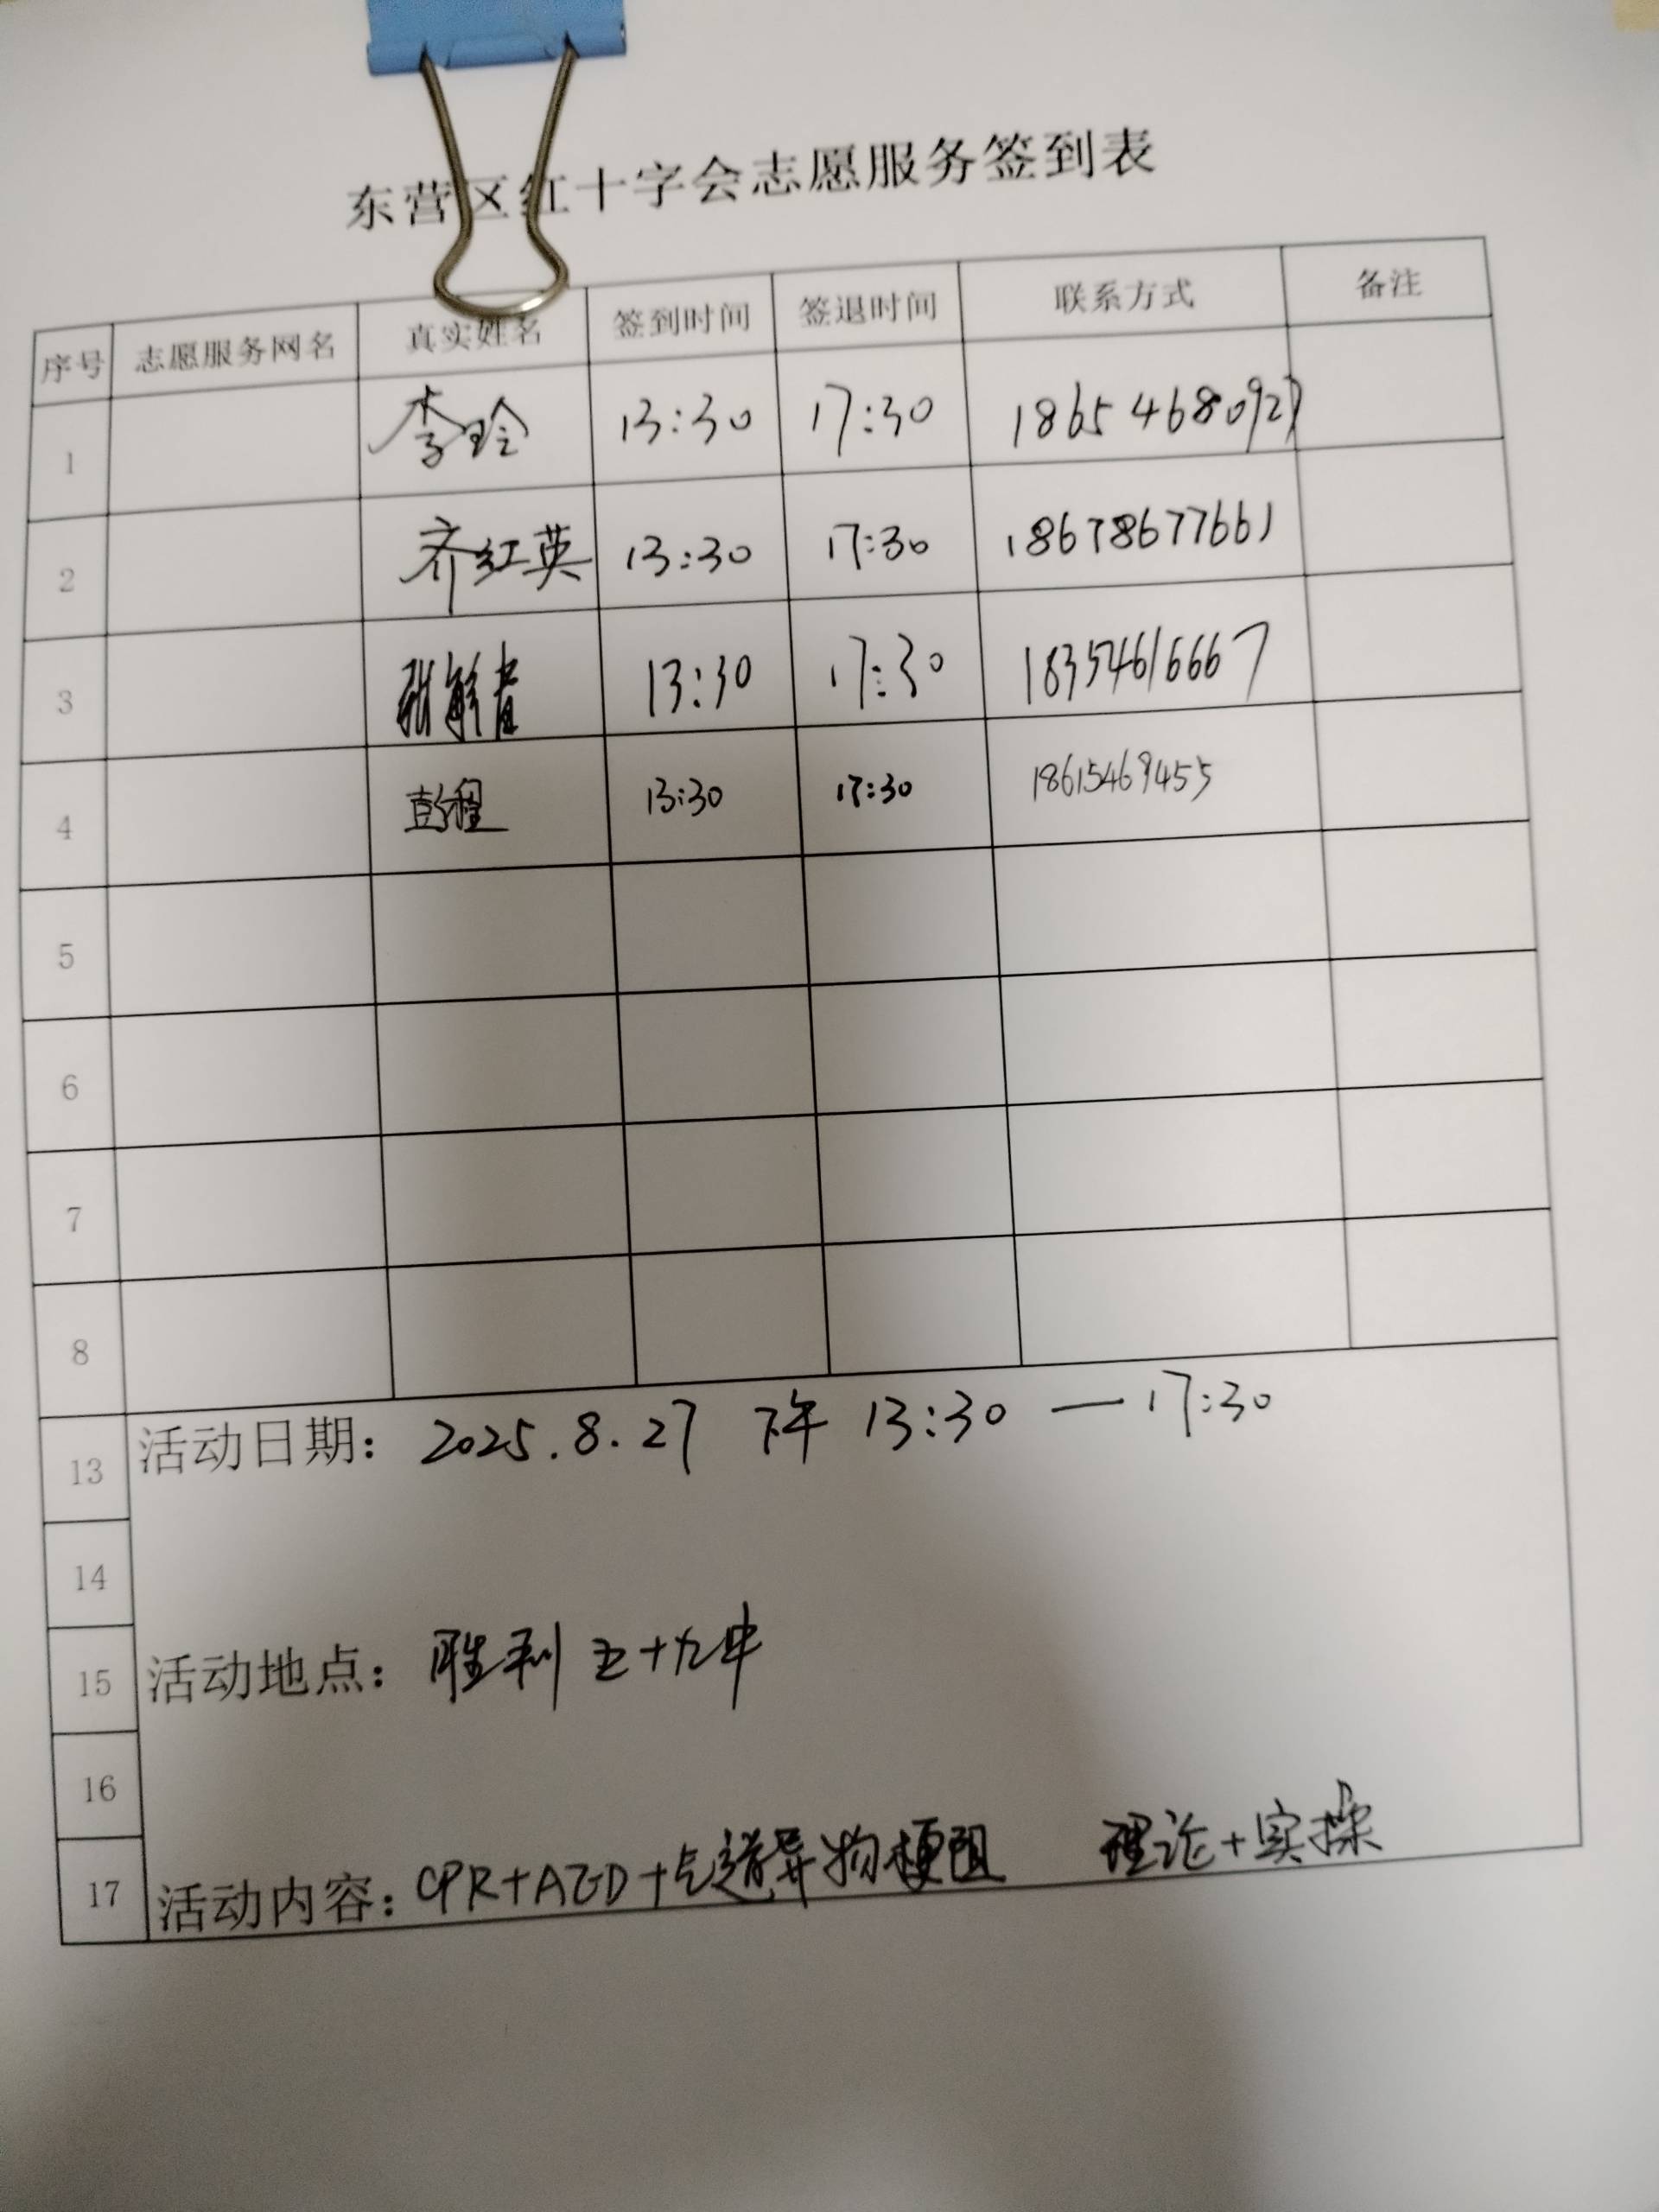 东营区红十字会志愿服务签到表
序号 志愿服务网名 真实姓名 签到时间 签退时间 联系方式 备注
1 李玲 13:30 17:30 18654680927
2 齐红英 13:30 17:30 18678677661
3 13:30 17:30 18354616667
4 彭程 13:30 17:30 18615469455
5
6
7
8
13 活动日期： 2025.8.27 下午 13:30 — 17:30
14
15 活动地点： 胜利五十九中
16
17 活动内容： CPR+AED+气道异物梗阻 理论+实操